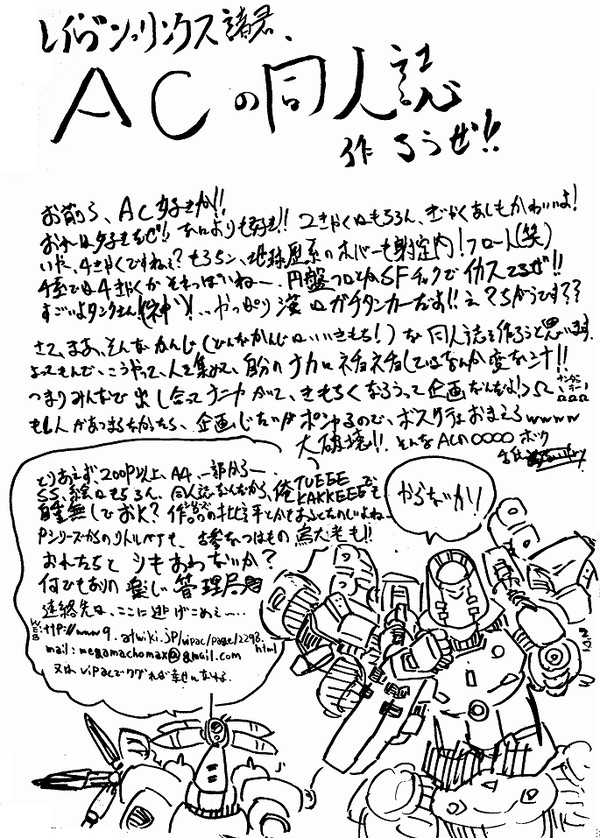 レイヴン、リンクス諸君、
ACの同人誌
作ろうぜ!!
お前ら、AC好きか!!
おれは好きだぜ!! なによりも好き!! 2きゃくはもちろん、ぎゃくあしもかわいいよ!
いや、4きゃくですねぇ? もちろん、地球屋系のホバーも射定内! フロート(笑)
円盤フロとかSFチックでイカスてるぜ!!
すごいよタンクさん!(神)!…やっぱり漢はガチタンカーだお!! え?ちがうです??
さて、まあ、そんなかんじ(どんなかんじはいいきもち!)な同人誌を作ろうと思います。
よってもんで、こうやって、人を集めて、自分のナカにネチョネチョしているなんか変なシナ!!
つまりみんなで出し合って きもちくなろうって企画なんだよ!
もし人があつまらなかったら、企画じたいがポシャるので、ボスケテはおまえらwwww
大破壊!! そんなACの〇〇〇〇ホウ
とりあえず、200P以上、A4、一部から—
SS、絵はもちろん、同人誌なんだから、俺TUEEEで
自重無しでおK? KAKKEEEも
Pシリーズからのリトルベアも、古参なつはもの烏大老も!!
おれたちと シキあわないか?
何でもありの楽しい管理局
連絡先は、ここに逃げこめぇ~…
WEB http://www9.atwiki.jp/vipac/page/2298.html
mail: megamachomax@gmail.com
又は vipacでググれば幸せになれる。
やらないか!